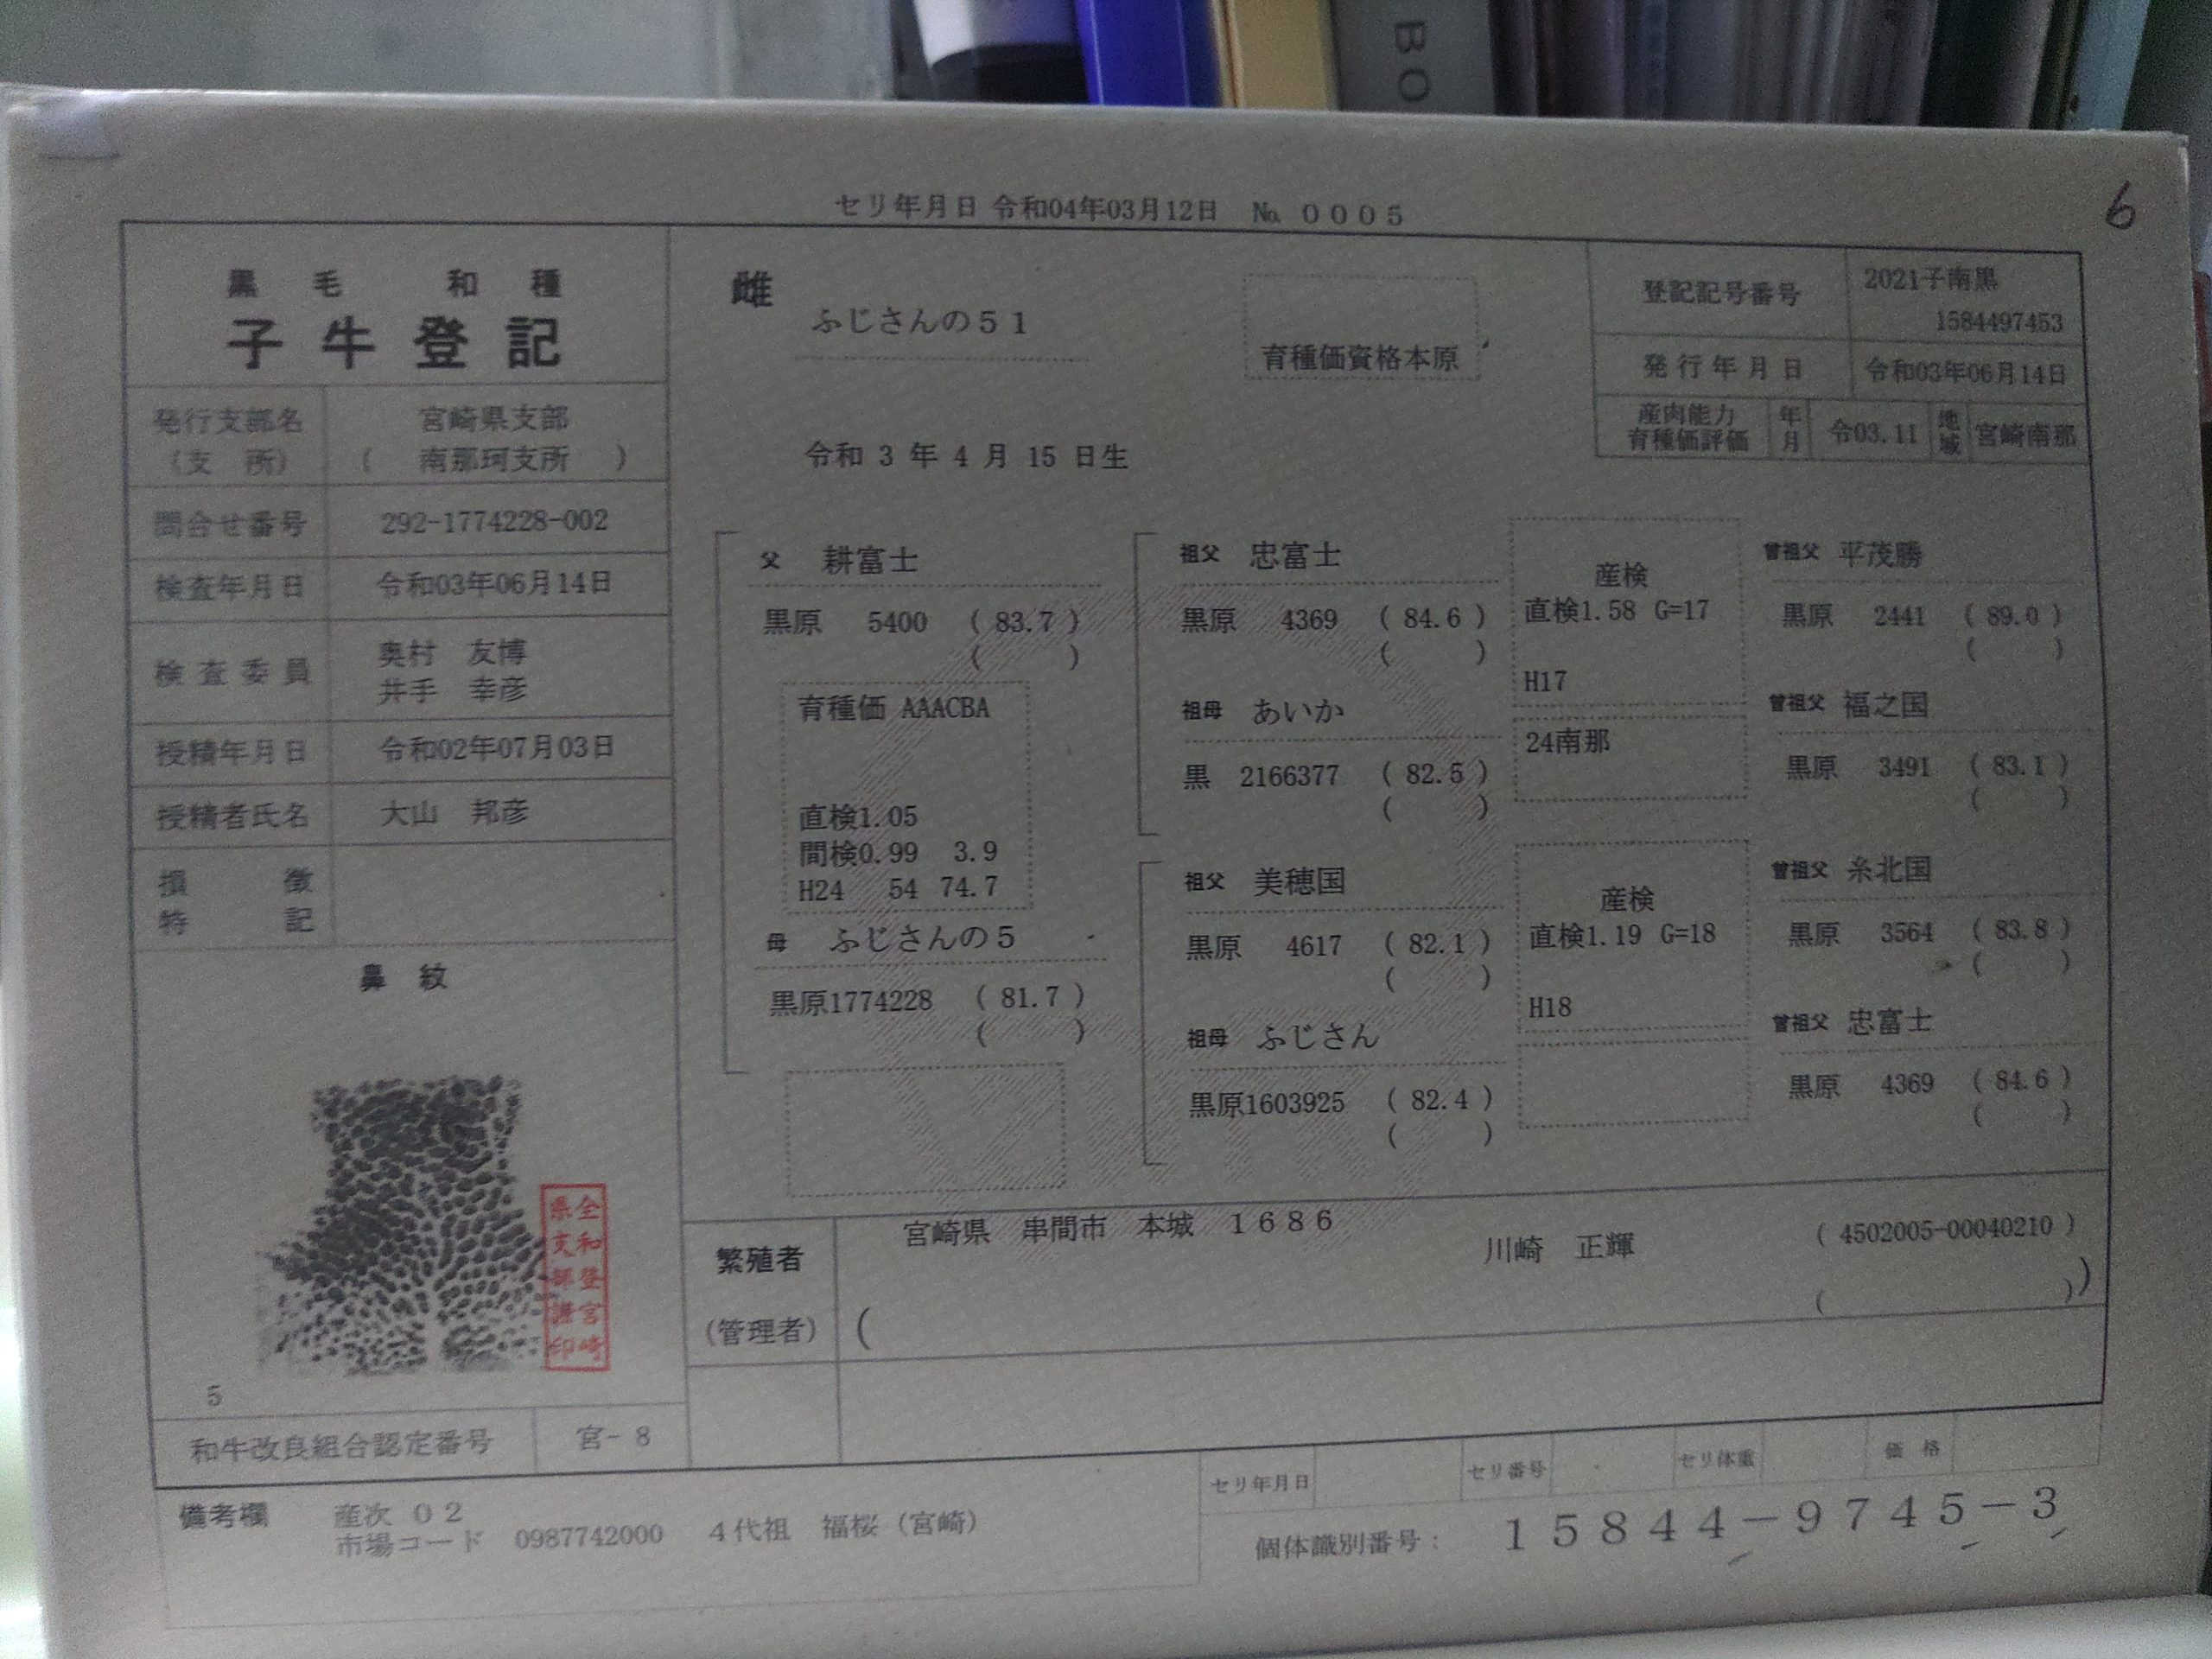 BO
6
セリ年月日 令和04年03月12日 № 0005
黒毛和種
子牛登記
発行支部名 宮崎県支部
（支所） （ 南那珂支所 ）
問合せ番号 292-1774228-002
検査年月日 令和03年06月14日
検査委員 奥村 友博
井手 幸彦
授精年月日 令和02年07月03日
授精者氏名 大山 邦彦
損徴
特記
鼻紋
全和登宮崎
県支部課印
5
和牛改良組合認定番号 宮- 8
雌
ふじさんの51
育種価資格本原
令和 3 年 4 月 15 日生
登記記号番号 2021子南黒
1584497453
発行年月日 令和03年06月14日
産肉能力 年 令03.11 地 宮崎南那
育種価評価 月 域
父 耕富士
黒原 5400 ( 83.7 )
( )
育種価 AAACBA
直検1.05
間検0.99 3.9
H24 54 74.7
母 ふじさんの5
黒原1774228 ( 81.7 )
( )
祖父 忠富士
黒原 4369 ( 84.6 )
( )
産検
直検1.58 G=17
H17
祖母 あいか
黒 2166377 ( 82.5 )
( )
24南那
祖父 美穂国
黒原 4617 ( 82.1 )
( )
産検
直検1.19 G=18
H18
祖母 ふじさん
黒原1603925 ( 82.4 )
( )
曾祖父 平茂勝
黒原 2441 ( 89.0 )
( )
曾祖父 福之国
黒原 3491 ( 83.1 )
( )
曾祖父 糸北国
黒原 3564 ( 83.8 )
( )
曾祖父 忠富士
黒原 4369 ( 84.6 )
( )
繁殖者 宮崎県 串間市 本城 1686
川崎 正輝 ( 4502005-00040210 )
(管理者) ( ( ))
備考欄 産次 02
市場コード 0987742000 4代祖 福桜（宮崎）
セリ年月日 セリ番号 セリ体重 価格
個体識別番号： 15844-9745-3